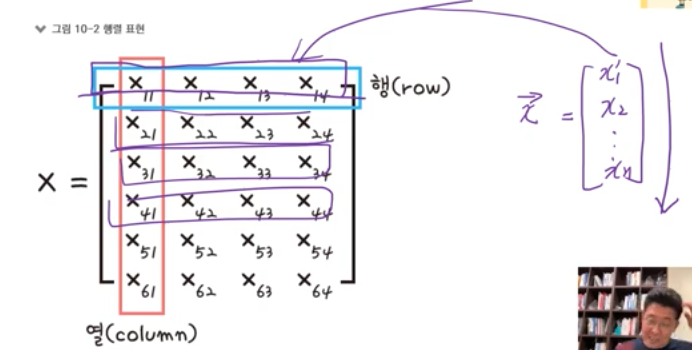 그림 10-2 행렬 표현
x11 x12 x13 x14 행(row)
x21 x22 x23 x24
x31 x32 x33 x34
X = x41 x42 x43 x44
x51 x52 x53 x54
x61 x62 x63 x64
열(column)
x⃗ = x1
x2
⋮
xn